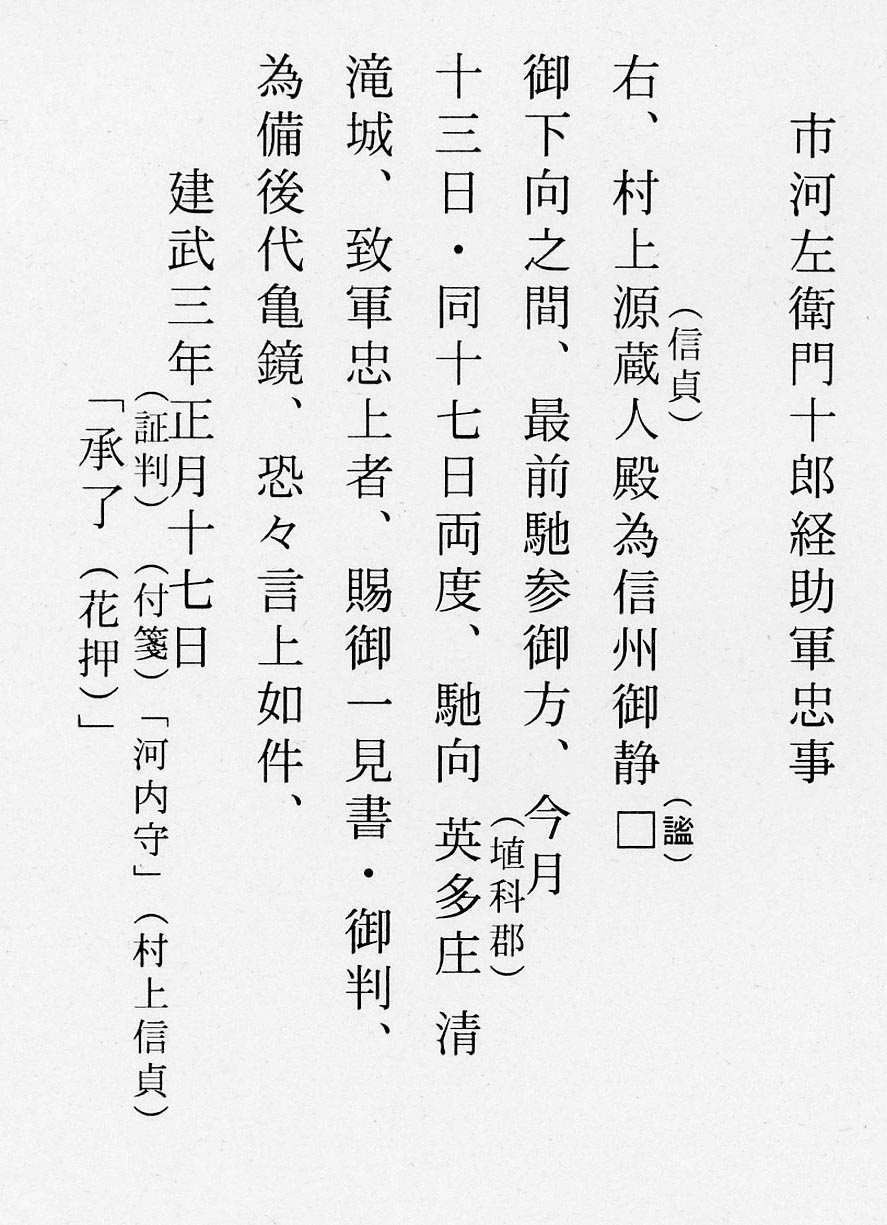 市河左衛門十郎経助軍忠事
（信貞）
（謐）
右、村上源蔵人殿為信州御静□
御下向之間、最前馳参御方、今月
（埴科郡）
十三日・同十七日両度、馳向英多庄清
滝城、致軍忠上者、賜御一見書・御判、
為備後代亀鏡、恐々言上如件、
建武三年正月十七日
（証判）（付箋）「河内守」（村上信貞）
「承了（花押）」